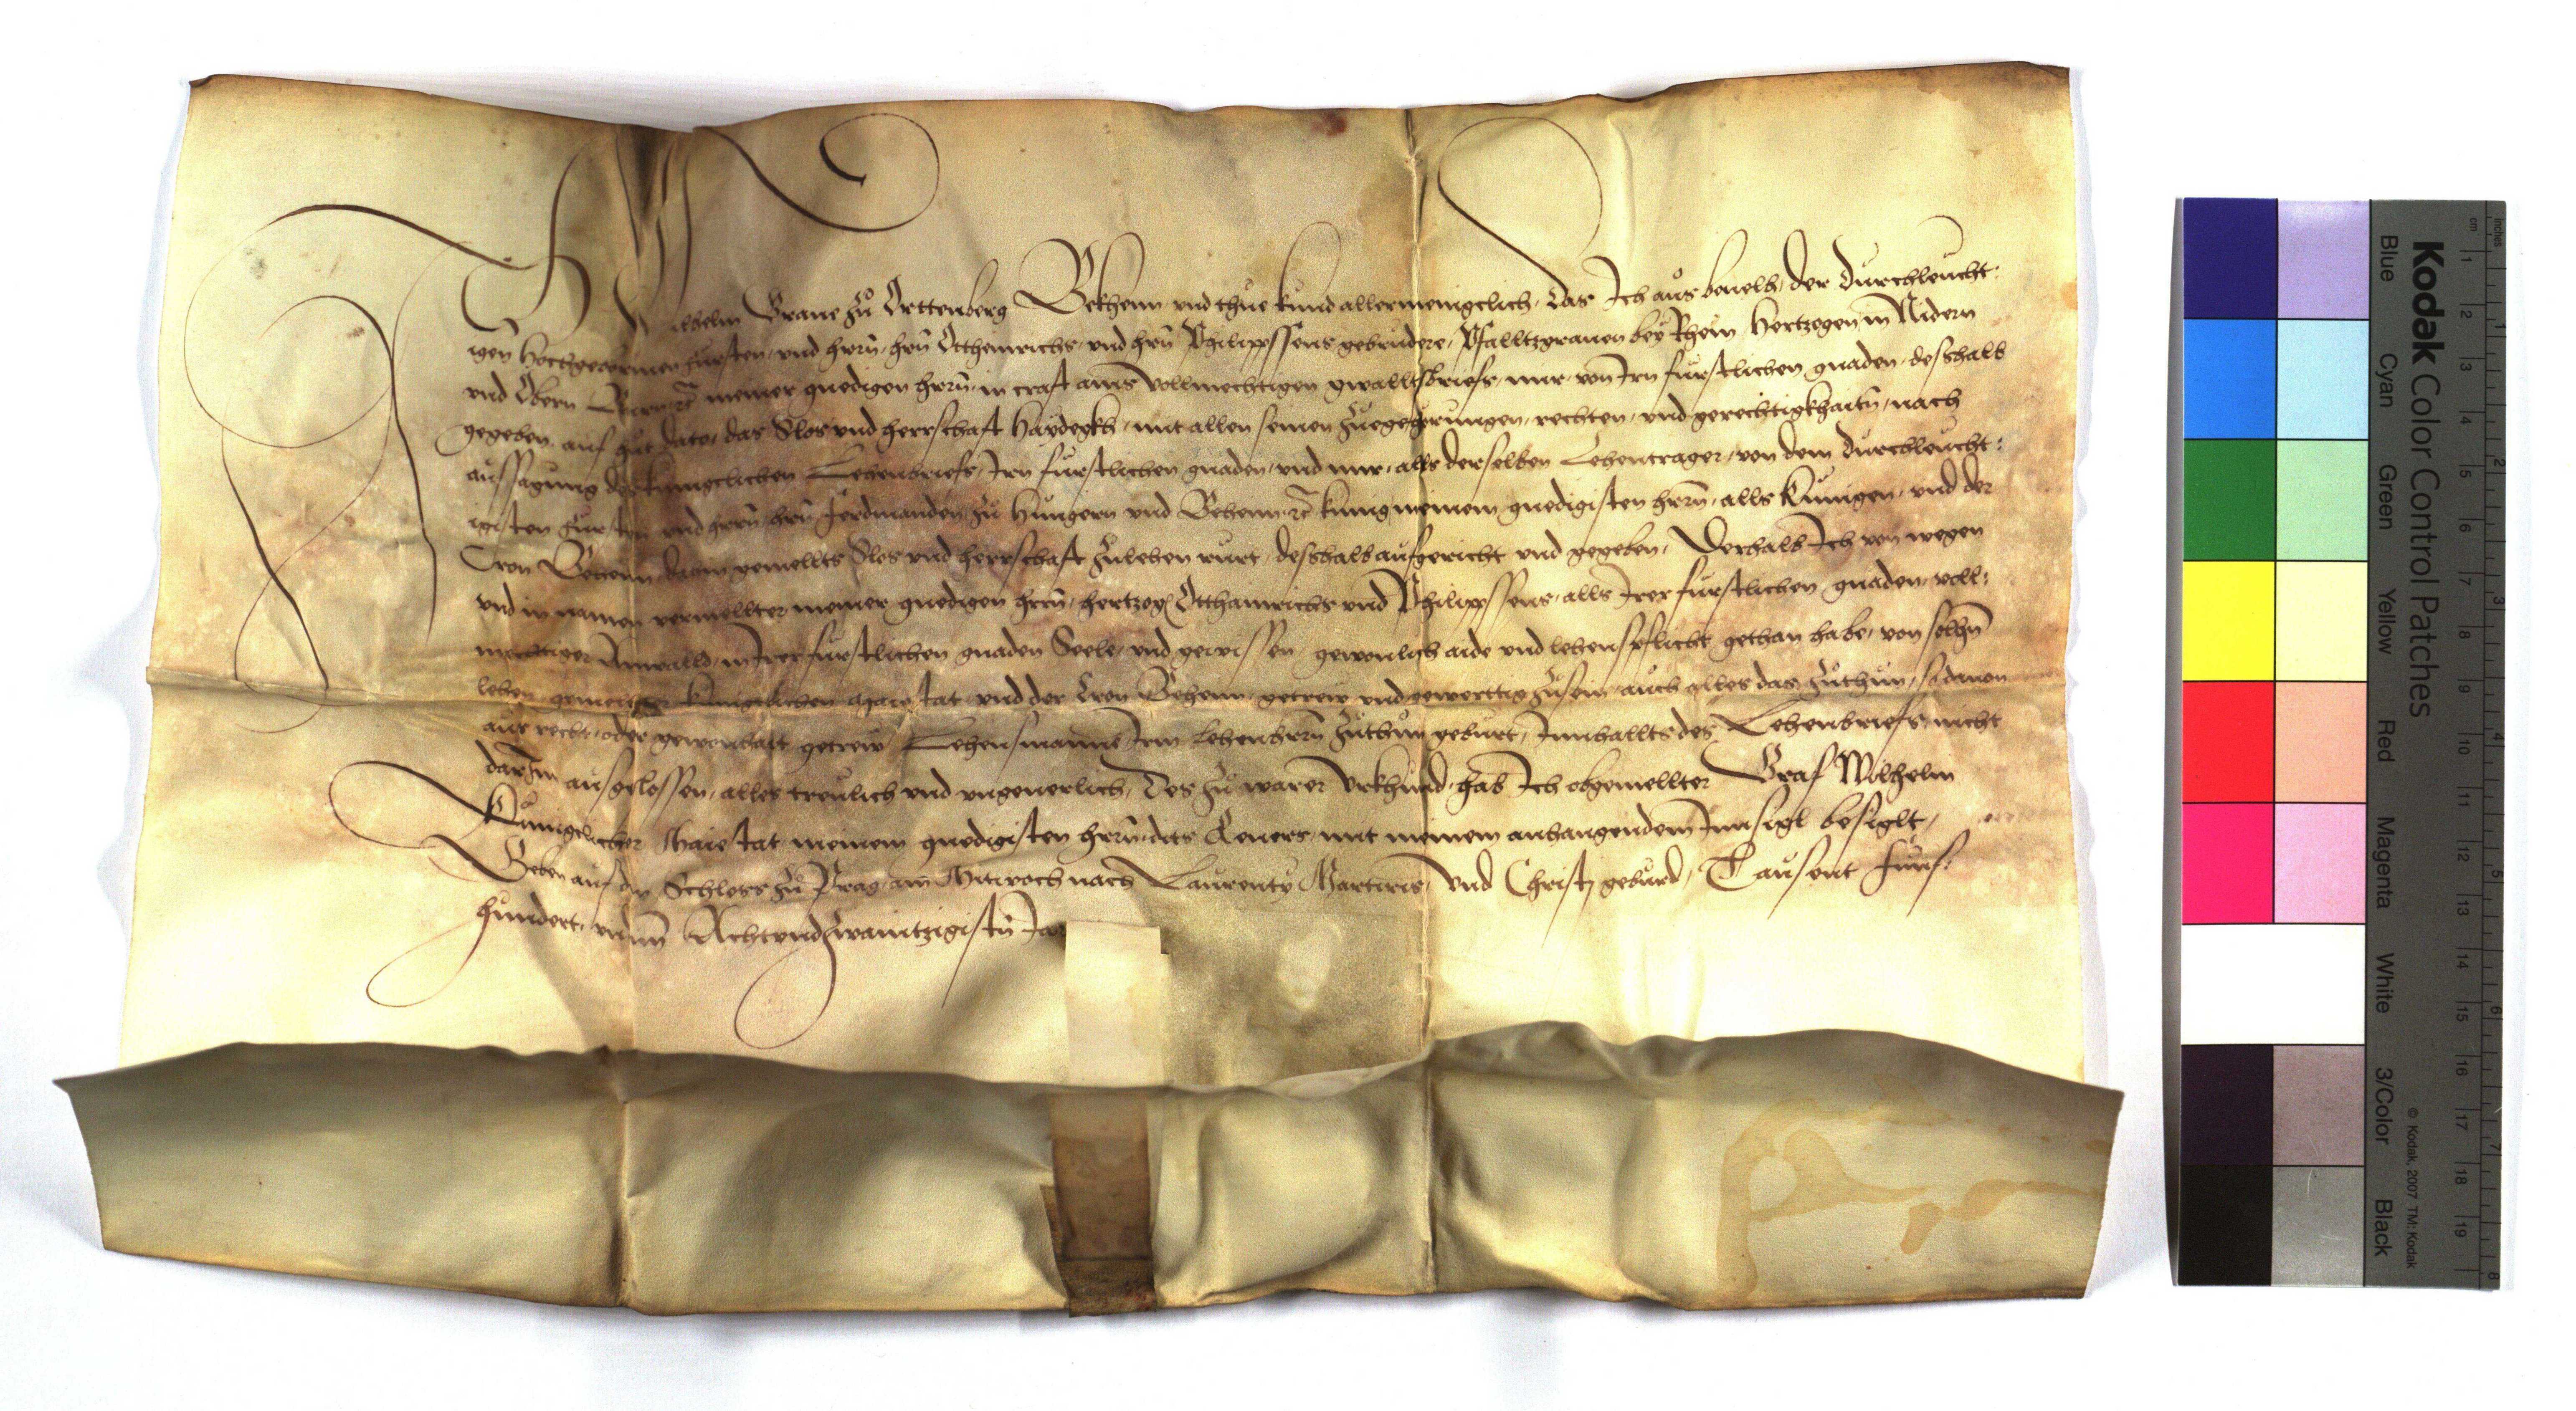 Ich Wilhelm Graue zů Orttenberg Bekhenn vnd thue kund allermenigclich, das Ich aus beuelh, der durchleucht:
igen hochgebornen fursten, vnd herrn, hrn Otthenrichs, vnd hrn Philippssens gebrudere, Pfalltzgrauen bey Rhein Hertzogen in Nidern
vnd Obern Bairn rc meiner gnedigen herrn, in craft ains vollmechtigen gwalltsbriefs, mir, von Irn furstlichen gnaden, desshalb
gegeben, auf hut dato, das Slos vnd herrschaft Haydegkh, mit allen seinen Zuegehorungen, rechten, vnd gerechtigkhaitn, nach
aussagung des kunigclichen Lehenbriefs, Irn furstlichen gnaden, vnd mir, alls derselben Lehentrager, von dem durchleucht:
igisten fursten vnd herrn, hrn Ferdinanden zu Hungern vnd Behem rc kunig meinem gnedigisten herrn, alls Kunigen, vnd der
Cron Behem dauon gemellts Slos vnd herrschaft zulehen rurt, desshalb aufgericht vnd gegeben, Derhalb Ich von wegen
vnd in namen vermellter meiner gnedigen herrn, hertzog Otthainrichs vnd Philippssens, alls Irer furstlichen gnaden, voll:
mechtiger Anwalld, in Irer furstlichen gnaden Seele, vnd gewissen, gewonlich aide vnd lehenspflicht gethan habe, von solhn
lehen gemellter kunigclichen Maiestat vnd der Cron Behem, getrew vnd gewerttig zusein, auch alles das zuthun, so dauon
aus recht, oder gewonhait getrew Lehensmanne Irm lehenherrn zuthun geburt, Innhallts des Lehenbriefs, nicht
darInn ausgelossen, alles treulich vnd vngeuerlich, Des zu warer Vrkhund, hab Ich obgemellter Graf Wilhelm
Kunigclicher Maiestat meinem gnedigisten herrn, dits Reuers, mit meinem anhangendem Innsigl besiglt,
Geben auf dem Schloss zu Prag, am Mitwoch nach Laurenty Martiris, Vnd Christi geburd, Tausent funf:
hundert, vnd im Achtundzwaintzigistn Jar
Kodak Color Control Patches
Blue Cyan Green Yellow Red Magenta White 3/Color Black
© Kodak, 2007 TM: Kodak
cm 1 2 3 4 5 6 7 8 9 10 11 12 13 14 15 16 17 18 19
inches 1 2 3 4 5 6 7 8